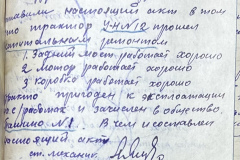 ставили настоящий акт в том
что трактор УНИ2 прошел
капитальным ремонтом
1. Задний мост работает хорошо
2 мотор работает хорошо
3 коробка работает хорошо
пригоден к эксплоатации
работам и зачислен в
машино № 1. В чем и составлен
настоящий акт
ст. механик